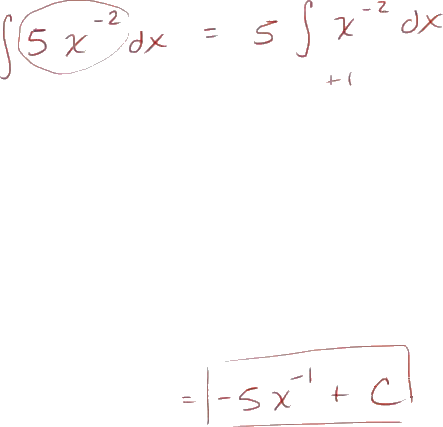 ∫ 5 x⁻² dx = 5 ∫ x⁻² dx
+1
= -5x⁻¹ + C